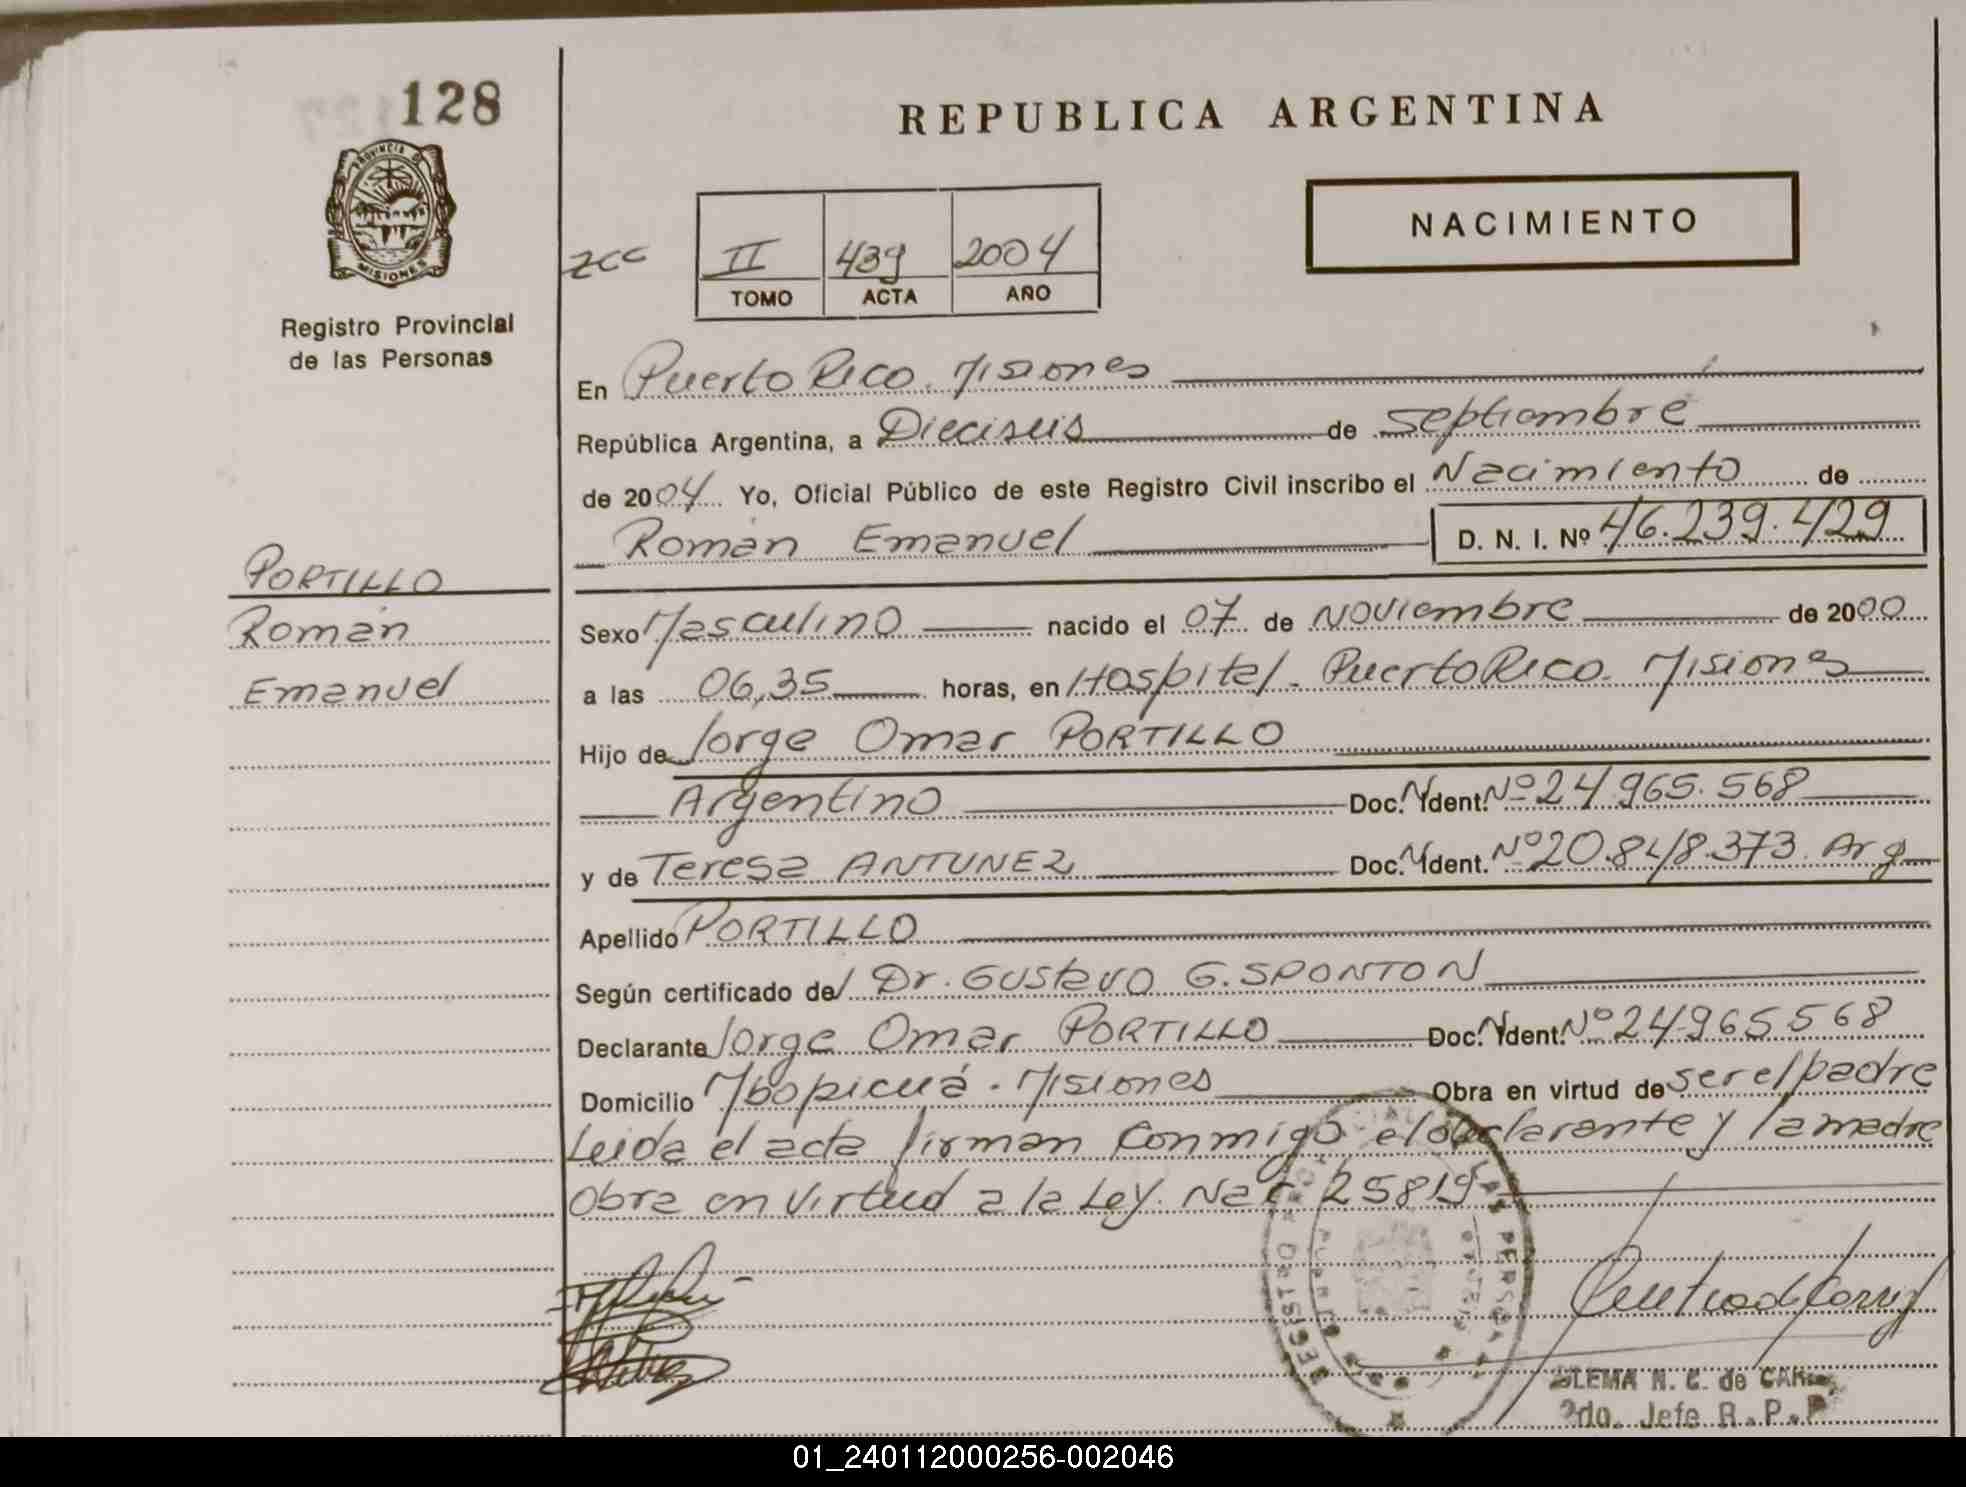 128
REPUBLICA ARGENTINA
PROVINCIA DE
MISIONES
Registro Provincial
de las Personas
NACIMIENTO
II 439 2004
TOMO ACTA AÑO
En Puerto Rico. Misiones
República Argentina, a Dieciseis de septiembre
de 2004 Yo, Oficial Público de este Registro Civil inscribo el Nacimiento de
Román Emanuel D. N. I. Nº 46.239.429
PORTILLO
Román
Emanuel
Sexo Masculino nacido el 07 de Noviembre de 2000
a las 06,35 horas, en Hospital - Puerto Rico. Misiones
Hijo de Jorge Omar PORTILLO
Argentino Doc. N Ident. Nº 24 965.568
y de Teresa ANTUNEZ Doc. N Ident. Nº 20.848.373. Arg
Apellido PORTILLO
Según certificado del Dr. Gustavo G. SPONTON
Declarante Jorge Omar PORTILLO Doc. N Ident. Nº 24965568
Domicilio Mbopicuá - Misiones Obra en virtud de ser el padre
Leida el acta firman conmigo el declarante y la madre
Obra en virtud a la Ley. Nac 25819
REGISTRO LAS PERSONAS
N. C. de
2do. Jefe R. P. P
01_240112000256-002046